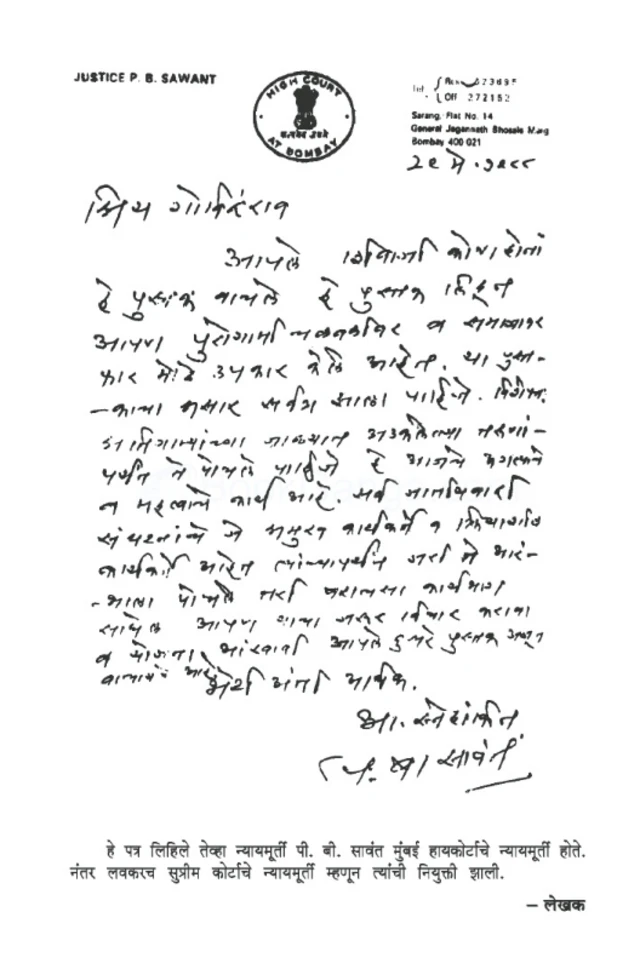 JUSTICE P. B. SAWANT
HIGH COURT
सत्यमेव जयते
AT BOMBAY
Tel.
Off 272152
Sarang, Flat No. 14
General Jagannath Bhosale Marg
Bombay 400 021
२९ मे १९८८
प्रिय गोविंदराव
आपले शिवाजी कोण होता
हे पुस्तक वाचले हे पुस्तक लिहून
आपण पुरोगामी व समाजावर
फार मोठे उपकार केले आहेत. या पुस्त-
-काचा प्रसार सर्वत्र झाला पाहिजे. विशेषतः
जाळ्यात अडकलेल्या तरुणां-
पर्यंत ते पोचले पाहिजे हे आजचे
व महत्वाचे कार्य आहे. सर्व
संघटनांचे जे प्रमुख कार्यकर्ते व क्रियाशील
कार्यकर्ते आहेत त्यांच्यापर्यंत जरी ते प्रारं-
-भाला पोचले तरी बराचसा कार्यभाग
साधेल आपण याचा जरूर विचार करावा
व आपले दुसरे पुस्तक अजून
वाचायचे आहे
भेटी अंती अधिक.
आ. स्नेहांकित
सावंत
हे पत्र लिहिले तेव्हा न्यायमूर्ती पी. बी. सावंत मुंबई हायकोर्टाचे न्यायमूर्ती होते.
नंतर लवकरच सुप्रीम कोर्टाचे न्यायमूर्ती म्हणून त्यांची नियुक्ती झाली.
– लेखक